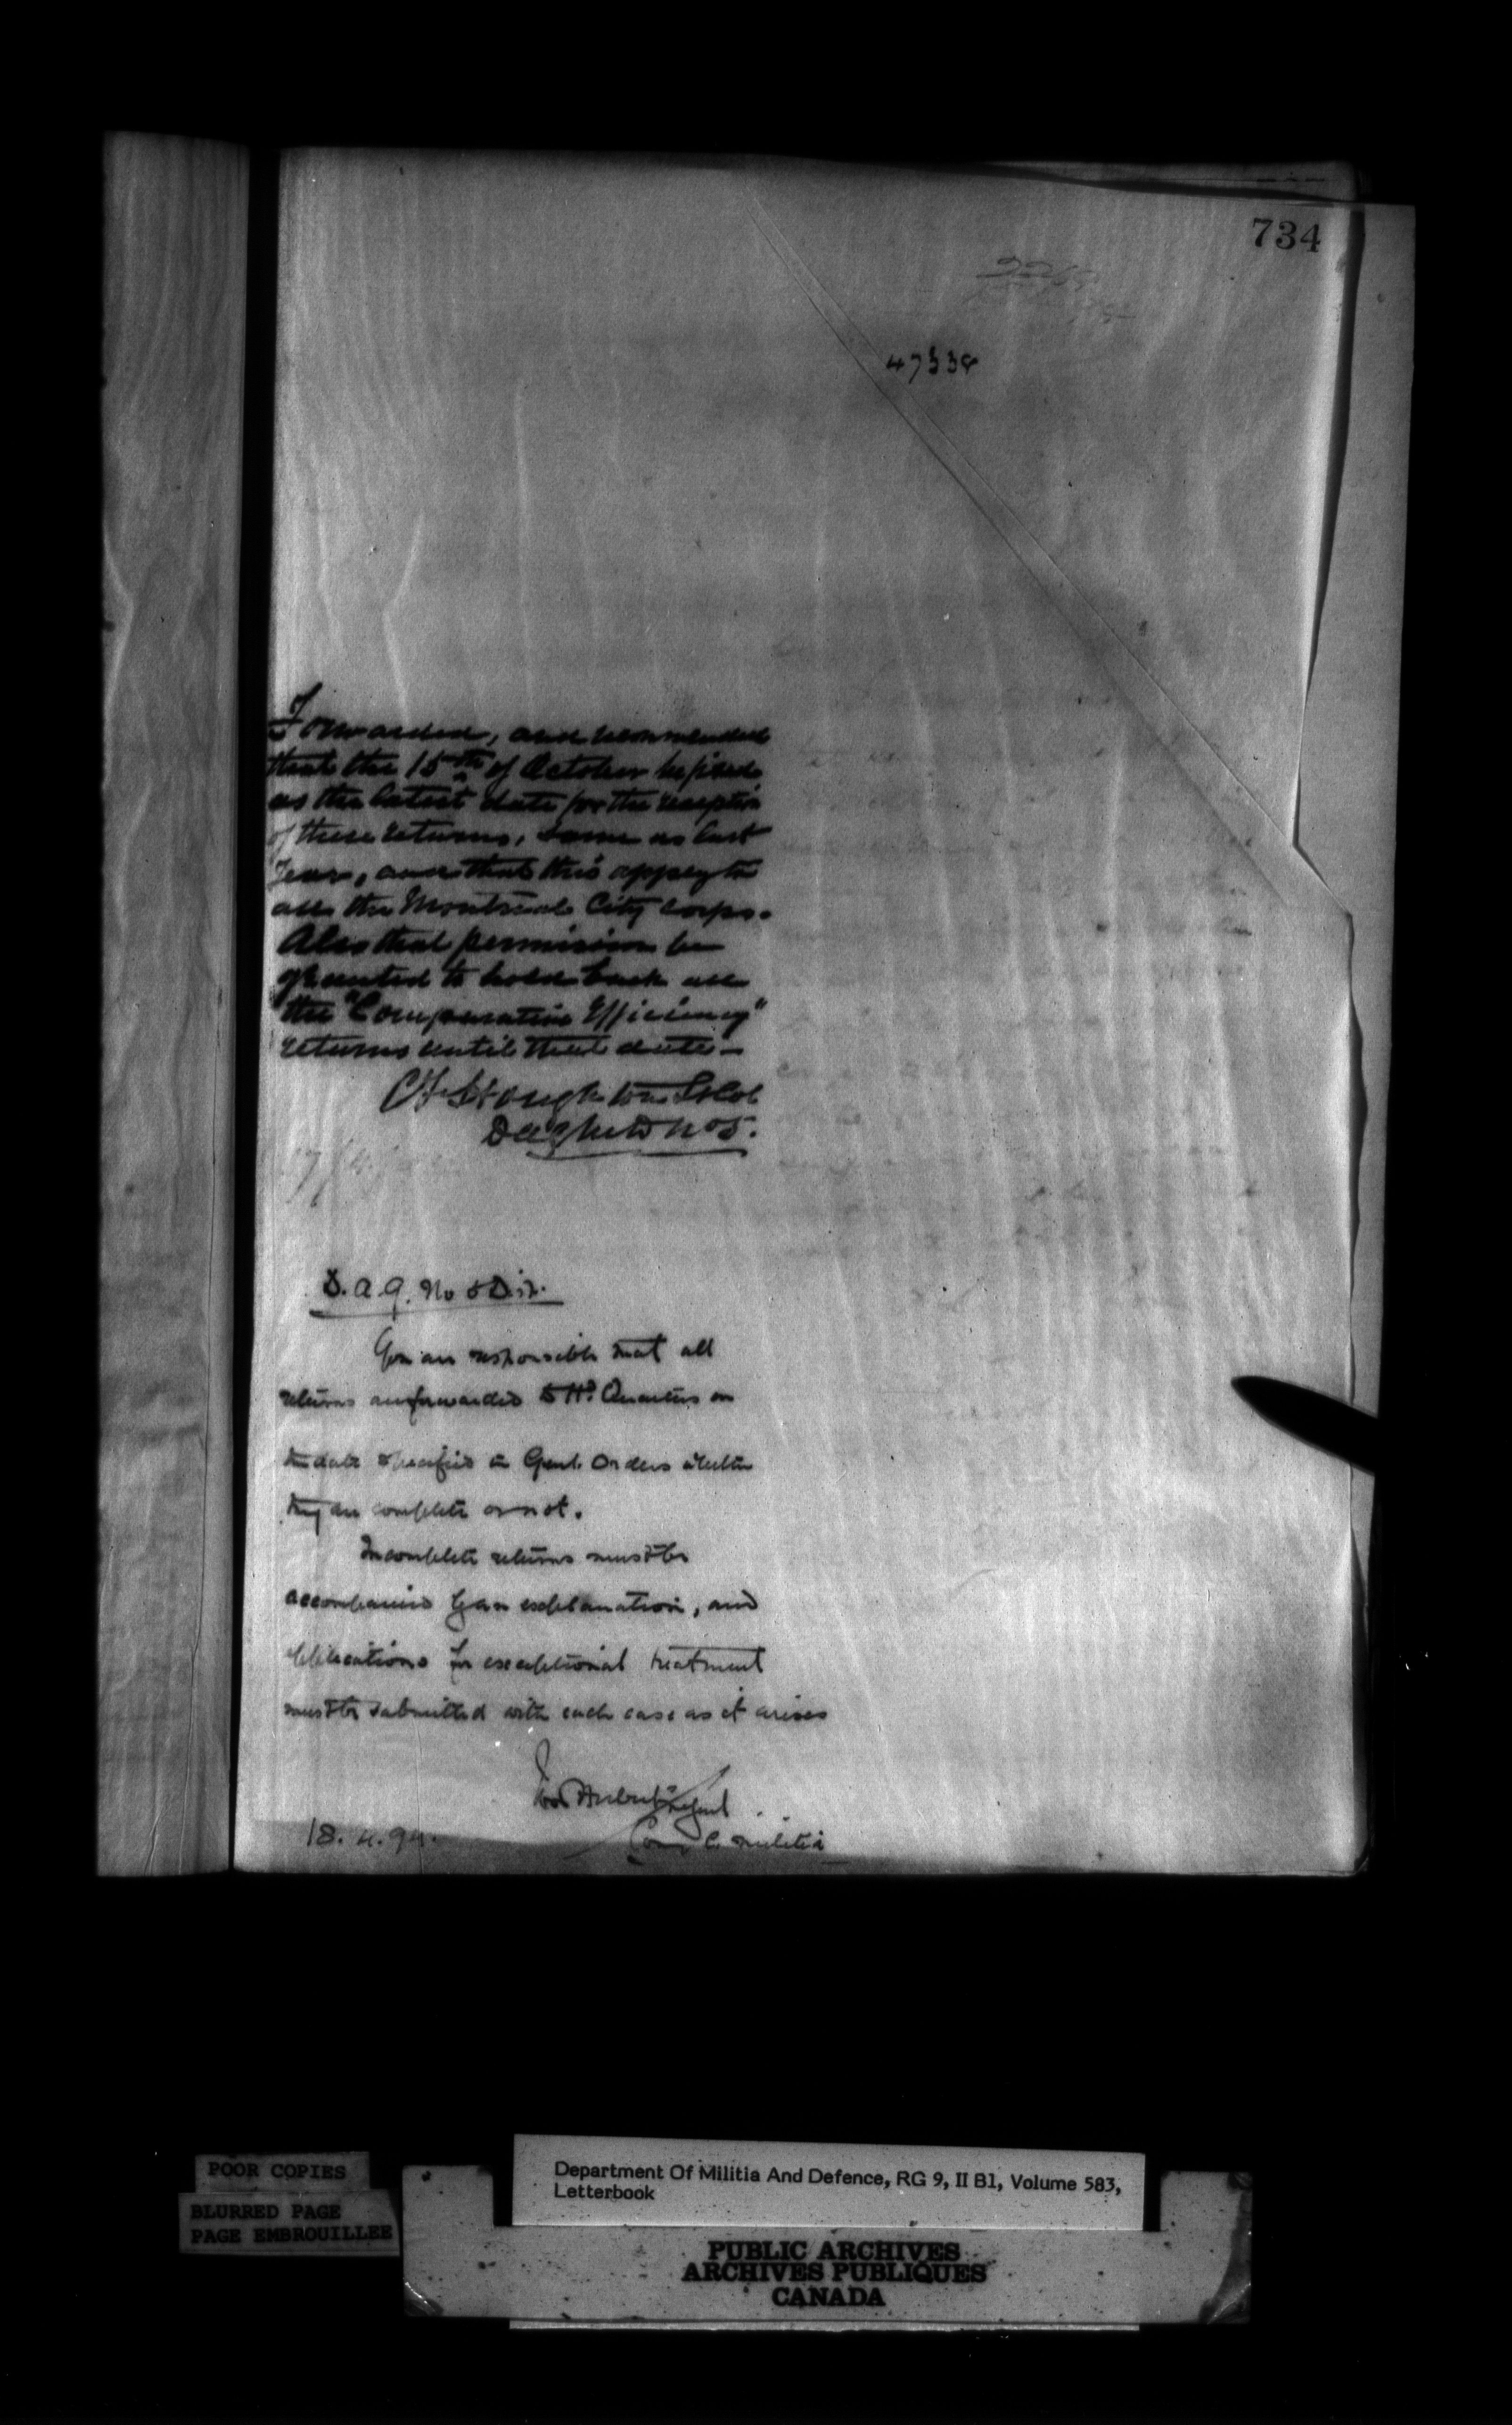 734
47338
Forwarded, and recommended
that the 15th of October be fixed
as the latest date for the reception
of these returns, same as last
Year, and that this apply to
all the Montreal City Corps.
Also that permission be
granted to hold back all
the "Comparative Efficiency"
returns until that date -
Houghton Lt Col
DAG MD No 5.
D.A.G. No 5 Dist.
You are responsible that all
returns are forwarded to Hd. Quarters on
the date specified in Genl. Orders whether
they are complete or not.
Incomplete returns must be
accompanied by an explanation, and
applications for exceptional treatment
must be submitted with each case as it arises
Ivor Herbert M Genl
Comg C. Militia
18. 4. 94.
POOR COPIES
BLURRED PAGE
PAGE EMBROUILLEE
Department Of Militia And Defence, RG 9, II B1, Volume 583,
Letterbook
PUBLIC ARCHIVES
ARCHIVES PUBLIQUES
CANADA